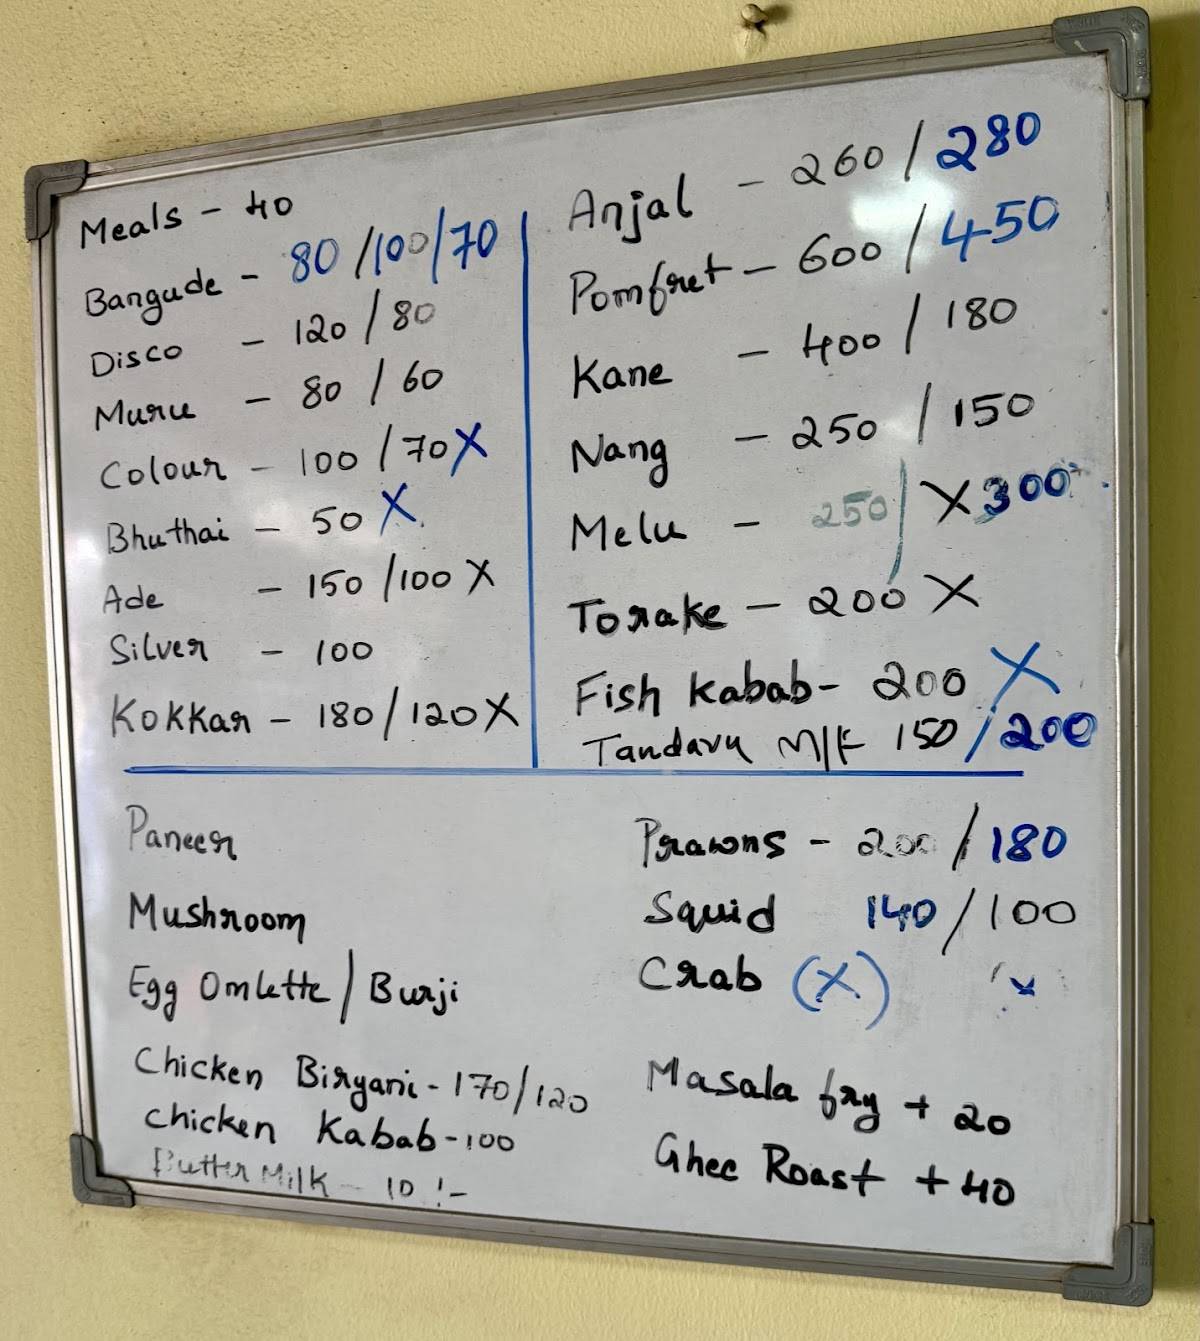 Meals - 40
Bangude - 80/100/70
Disco - 120/80
Muru - 80/60
Colour - 100/70 X
Bhuthai - 50 X
Ade - 150/100 X
Silver - 100
Kokkar - 180/120 X
Anjal - 260/280
Pomfret - 600/450
Kane - 400/180
Nang - 250/150
Melu - 250/ X 300
Torake - 200 X
Fish Kabab - 200 X
Tandavu M/F 150/200
Paneer
Mushroom
Egg Omlette/Burji
Chicken Biryani - 170/120
Chicken Kabab - 100
Butter Milk - 10 !-
Prawns - 200/180
Squid 140/100
Crab (X)
Masala fry + 20
Ghee Roast + 40